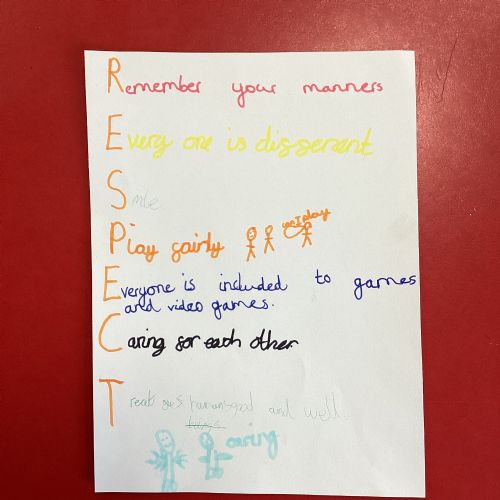 Remember your manners
Every one is disserent
Smile
can I play
Play sairly
Everyone is included to games
and video games.
Caring sor each other
Treat humans good and well.
caring